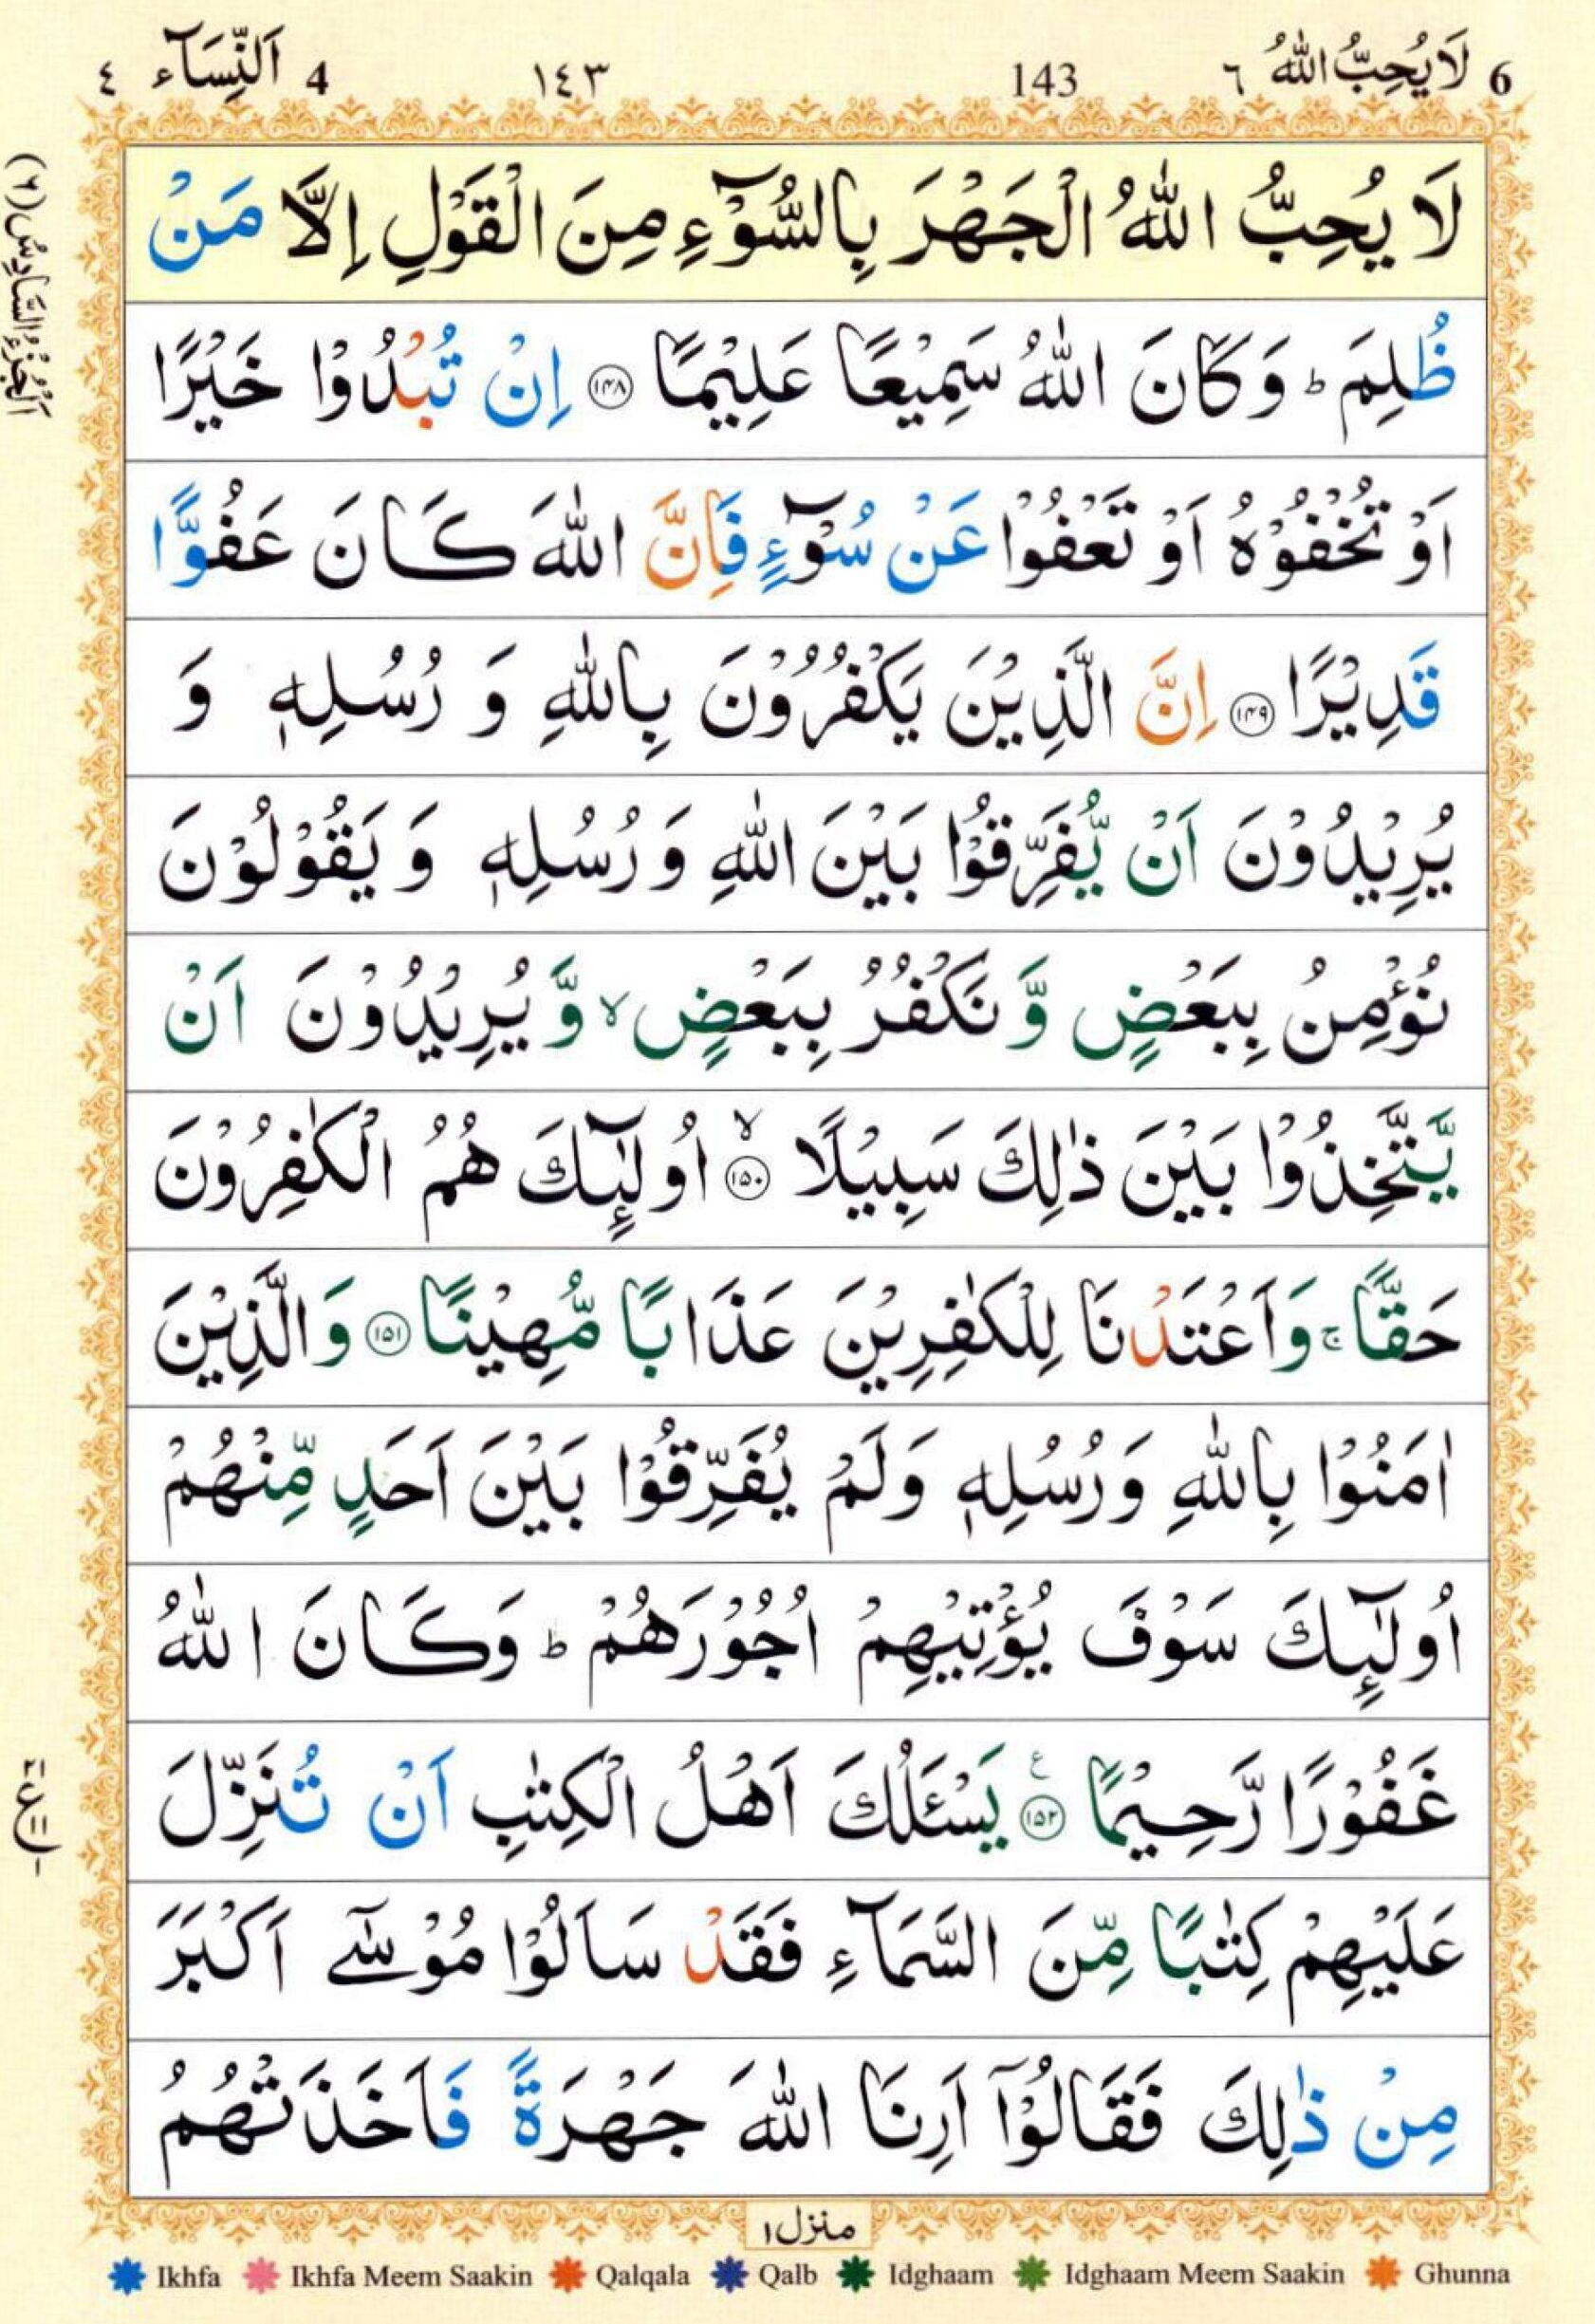 6 لَا يُحِبُّ اللّٰهُ ٦ 143 ١٤٣ 4 اَلنِّسَآء ٤
اَلْجُزْءُ السَّادِسُ (٦)
لَا يُحِبُّ اللّٰهُ الْجَهْرَ بِالسُّوْٓءِ مِنَ الْقَوْلِ اِلَّا مَنْ
ظُلِمَ ؕ وَكَانَ اللّٰهُ سَمِيْعًا عَلِيْمًا ۝۱۴۸ اِنْ تُبْدُوْا خَيْرًا
اَوْ تُخْفُوْهُ اَوْ تَعْفُوْا عَنْ سُوْٓءٍ فَاِنَّ اللّٰهَ كَانَ عَفُوًّا
قَدِيْرًا ۝۱۴۹ اِنَّ الَّذِيْنَ يَكْفُرُوْنَ بِاللّٰهِ وَ رُسُلِهٖ وَ
يُرِيْدُوْنَ اَنْ يُّفَرِّقُوْا بَيْنَ اللّٰهِ وَ رُسُلِهٖ وَ يَقُوْلُوْنَ
نُؤْمِنُ بِبَعْضٍ وَّ نَكْفُرُ بِبَعْضٍ ۙ وَّ يُرِيْدُوْنَ اَنْ
يَّتَّخِذُوْا بَيْنَ ذٰلِكَ سَبِيْلًا ۝۱۵۰ ۙ اُولٰٓئِكَ هُمُ الْكٰفِرُوْنَ
حَقًّا ۚ وَاَعْتَدْنَا لِلْكٰفِرِيْنَ عَذَابًا مُّهِيْنًا ۝۱۵۱ وَالَّذِيْنَ
اٰمَنُوْا بِاللّٰهِ وَرُسُلِهٖ وَلَمْ يُفَرِّقُوْا بَيْنَ اَحَدٍ مِّنْهُمْ
اُولٰٓئِكَ سَوْفَ يُؤْتِيْهِمْ اُجُوْرَهُمْ ؕ وَكَانَ اللّٰهُ
غَفُوْرًا رَّحِيْمًا ۝۱۵۲ ع يَسْـَٔلُكَ اَهْلُ الْكِتٰبِ اَنْ تُنَزِّلَ
عَلَيْهِمْ كِتٰبًا مِّنَ السَّمَآءِ فَقَدْ سَاَلُوْا مُوْسٰٓى اَكْبَرَ
مِنْ ذٰلِكَ فَقَالُوْٓا اَرِنَا اللّٰهَ جَهْرَةً فَاَخَذَتْهُمُ
منزل ١
Ikhfa Ikhfa Meem Saakin Qalqala Qalb Idghaam Idghaam Meem Saakin Ghunna